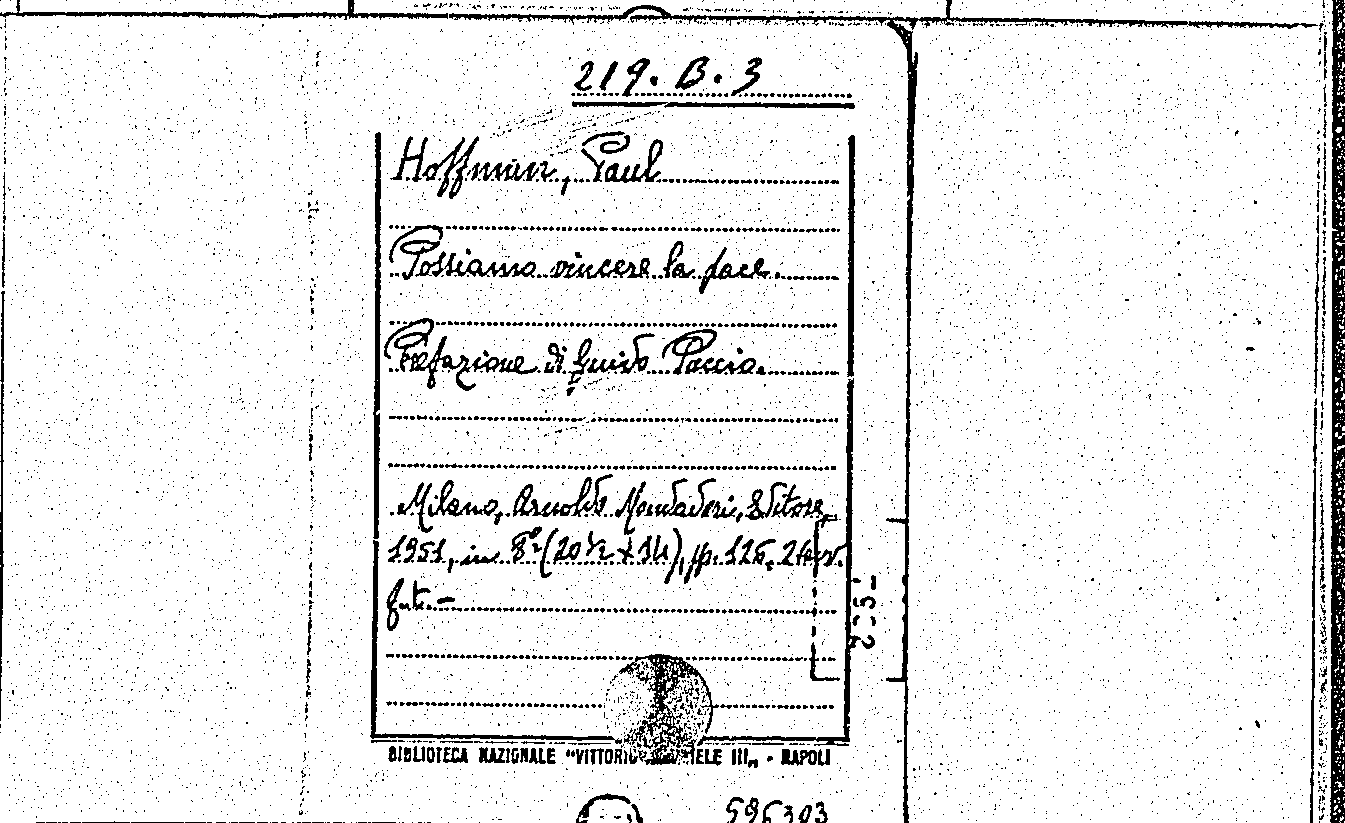 219. B. 3
Hoffman, Paul
Possiamo vincere la pace.
Prefazione di Guido
Milano, Arnoldo Mondadori, Editore,
1951, in 8º (20½ x 14), pp. 126, 2 tavv.
f.t. -
BIBLIOTECA NAZIONALE "VITTORIO EMANUELE III„ - NAPOLI